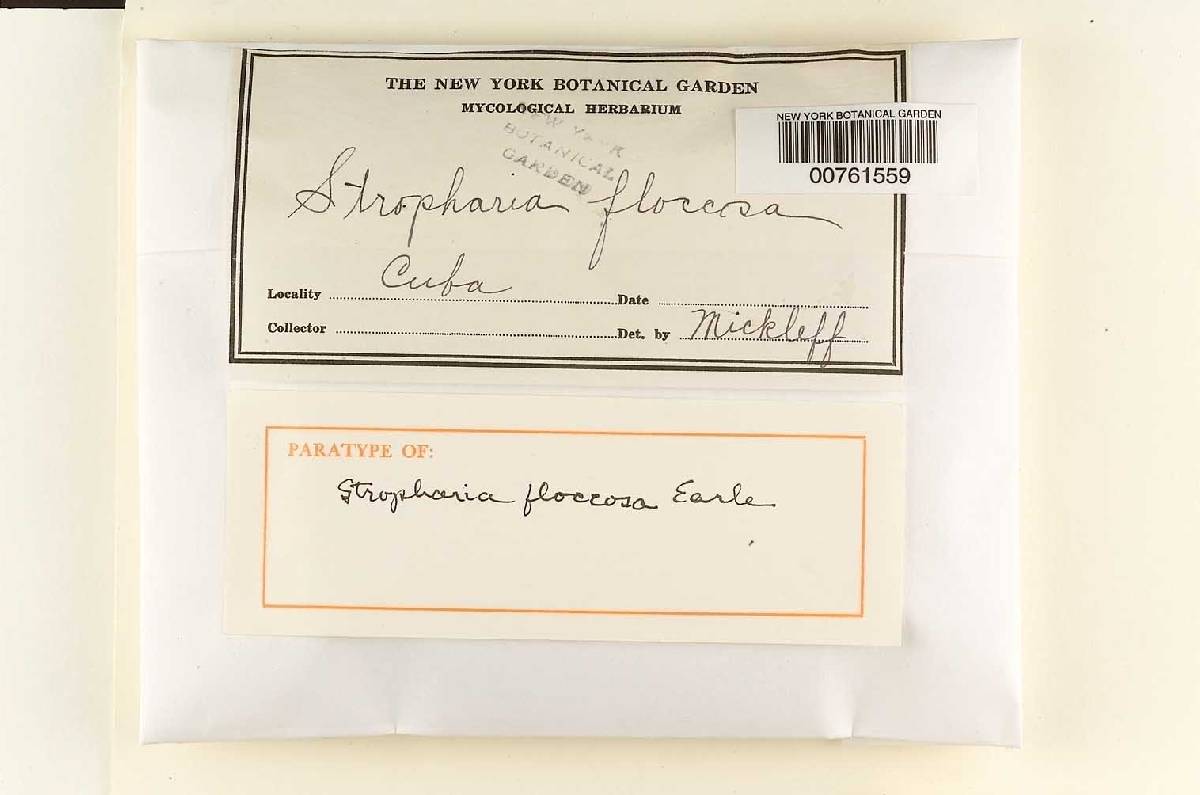 THE NEW YORK BOTANICAL GARDEN
MYCOLOGICAL HERBARIUM
NEW YORK
BOTANICAL
GARDEN
NEW YORK BOTANICAL GARDEN
00761559
Stropharia floccosa
Locality Cuba Date
Collector Det. by Mickleff
PARATYPE OF:
Stropharia floccosa Earle